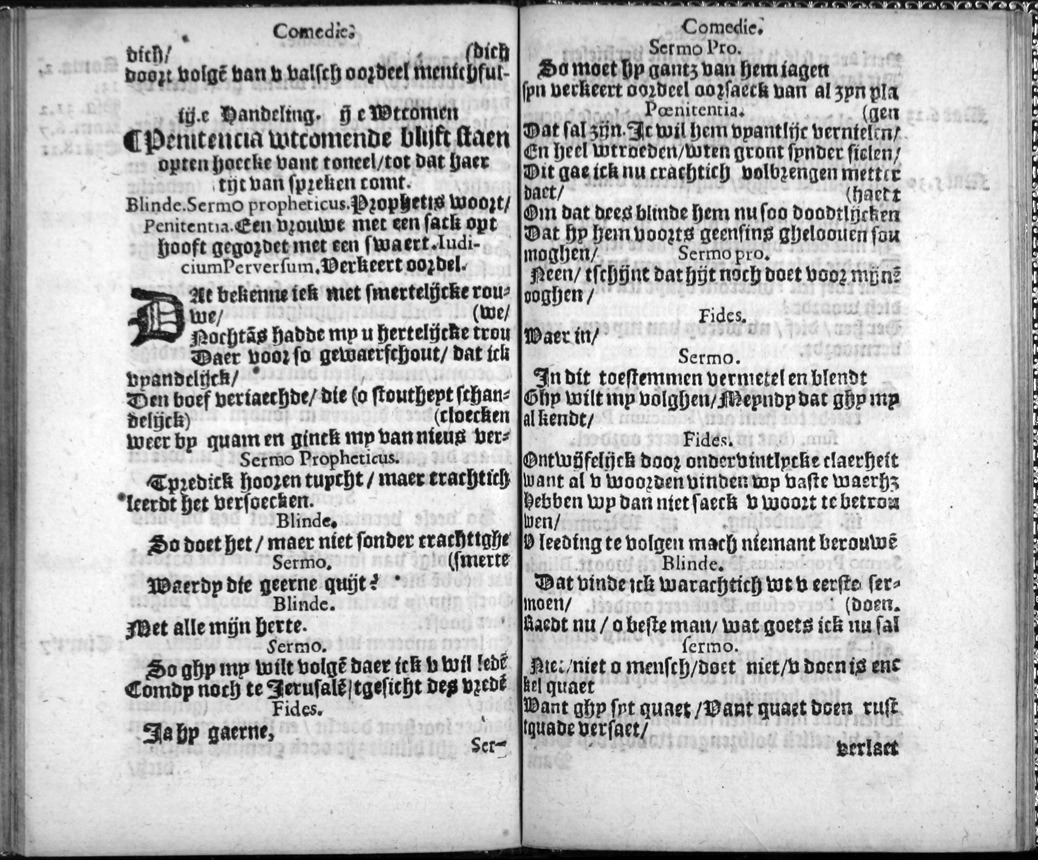 Comedie.
dich/ (dich
doort volgē van v valsch oordeel menichful-
iij.e Handeling. ij e Wtcomen
¶Penitencia wtcomende blijft staen
opten hoecke vant toneel/tot dat haer
tijt van spreken comt.
Blinde.Sermo propheticus.Prophetis woort/
Penitentia.Een vrouwe met een sack opt
hooft gegordet met een swaert.Iudi-
ciumPerversum.Verkeert oordel.
DAt bekenne ick met smertelijcke rou-
we/ (we/
Nochtās hadde my u hertelijcke trou
Daer voor so gewaerschout/ dat ick
vpandelijck/
Den boef veriaechde/ die (o stoutheyt schan-
delijck) (cloecken
weer by quam en ginck my van nieus ver-
Sermo Propheticus.
Tpredick hooren tuycht/ maer crachtich
leerdt het versoecken.
Blinde.
So doet het/ maer niet sonder crachtighe
Sermo. (smerte
Waerdy die geerne quijt?
Blinde.
Met alle mijn herte.
Sermo.
So ghy my wilt volgē daer ick v wil ledē
Comdy noch te Jerusalē/tgesicht des vredē
Fides.
Ja hy gaerne,
Ser-
Comedie.
Sermo Pro.
So moet hy gantz van hem iagen
syn verkeert oordeel oorsaeck van al zyn pla
Pœnitentia. (gen
Dat sal zijn.Ic wil hem vyantlijc vernielen/
En heel wtroeden/wten gront synder sielen/
Dit gae ick nu crachtich volbrengen metter
daet/ (haett
Om dat dees blinde hem nu soo doodtlijcken
Dat hy hem voorts geensins gheloouen sou
moghen/ Sermo pro.
Neen/ tschijnt dat hijt noch doet voor mijnē
ooghen/
Fides.
Waer in/
Sermo.
In dit toestemmen vermetel en blendt
Ghy wilt my volghen/Meyndy dat ghy my
al kendt/
Fides.
Ontwijfelijck door ondervintlycke claerheit
want al v woorden vinden wy vaste waerhz
hebben wy dan niet saeck v woort te betrou
wen/
V leeding te volgen mach niemant berouwē
Blinde.
Dat vinde ick warachtich wt v eerste ser-
moen/ (doen.
Raedt nu/ o beste man/ wat goets ick nu sal
sermo.
Niet/niet o mensch/doet niet/v doen is enc
kel quaet
Want ghy syt quaet/Vant quaet doen rust
tquade versaet/
verlaet